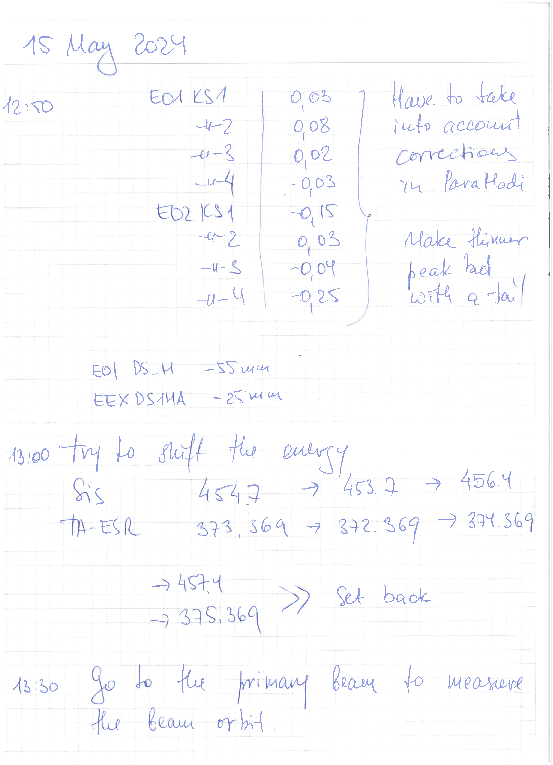 15 May 2024
12:50 E01 KS1 0,03 Have to take
-"-2 0,08 into account
-"-3 0,02 corrections
-"-4 -0,03 in ParaModi
E02 KS1 -0,15
-"-2 0,03 Make thinner
-"-3 -0,04 peak but
-"-4 -0,25 with a tail
E01 DS_H -55 mm
EEX DS1HA -25 mm
13:00 try to shift the energy
Sis 454.7 → 453.7 → 456.4
TA-ESR 373.369 → 372.369 → 374.369
→ 457.4
→ 375.369 >> Set back
13:30 Go to the primary beam to measure
the beam orbit.